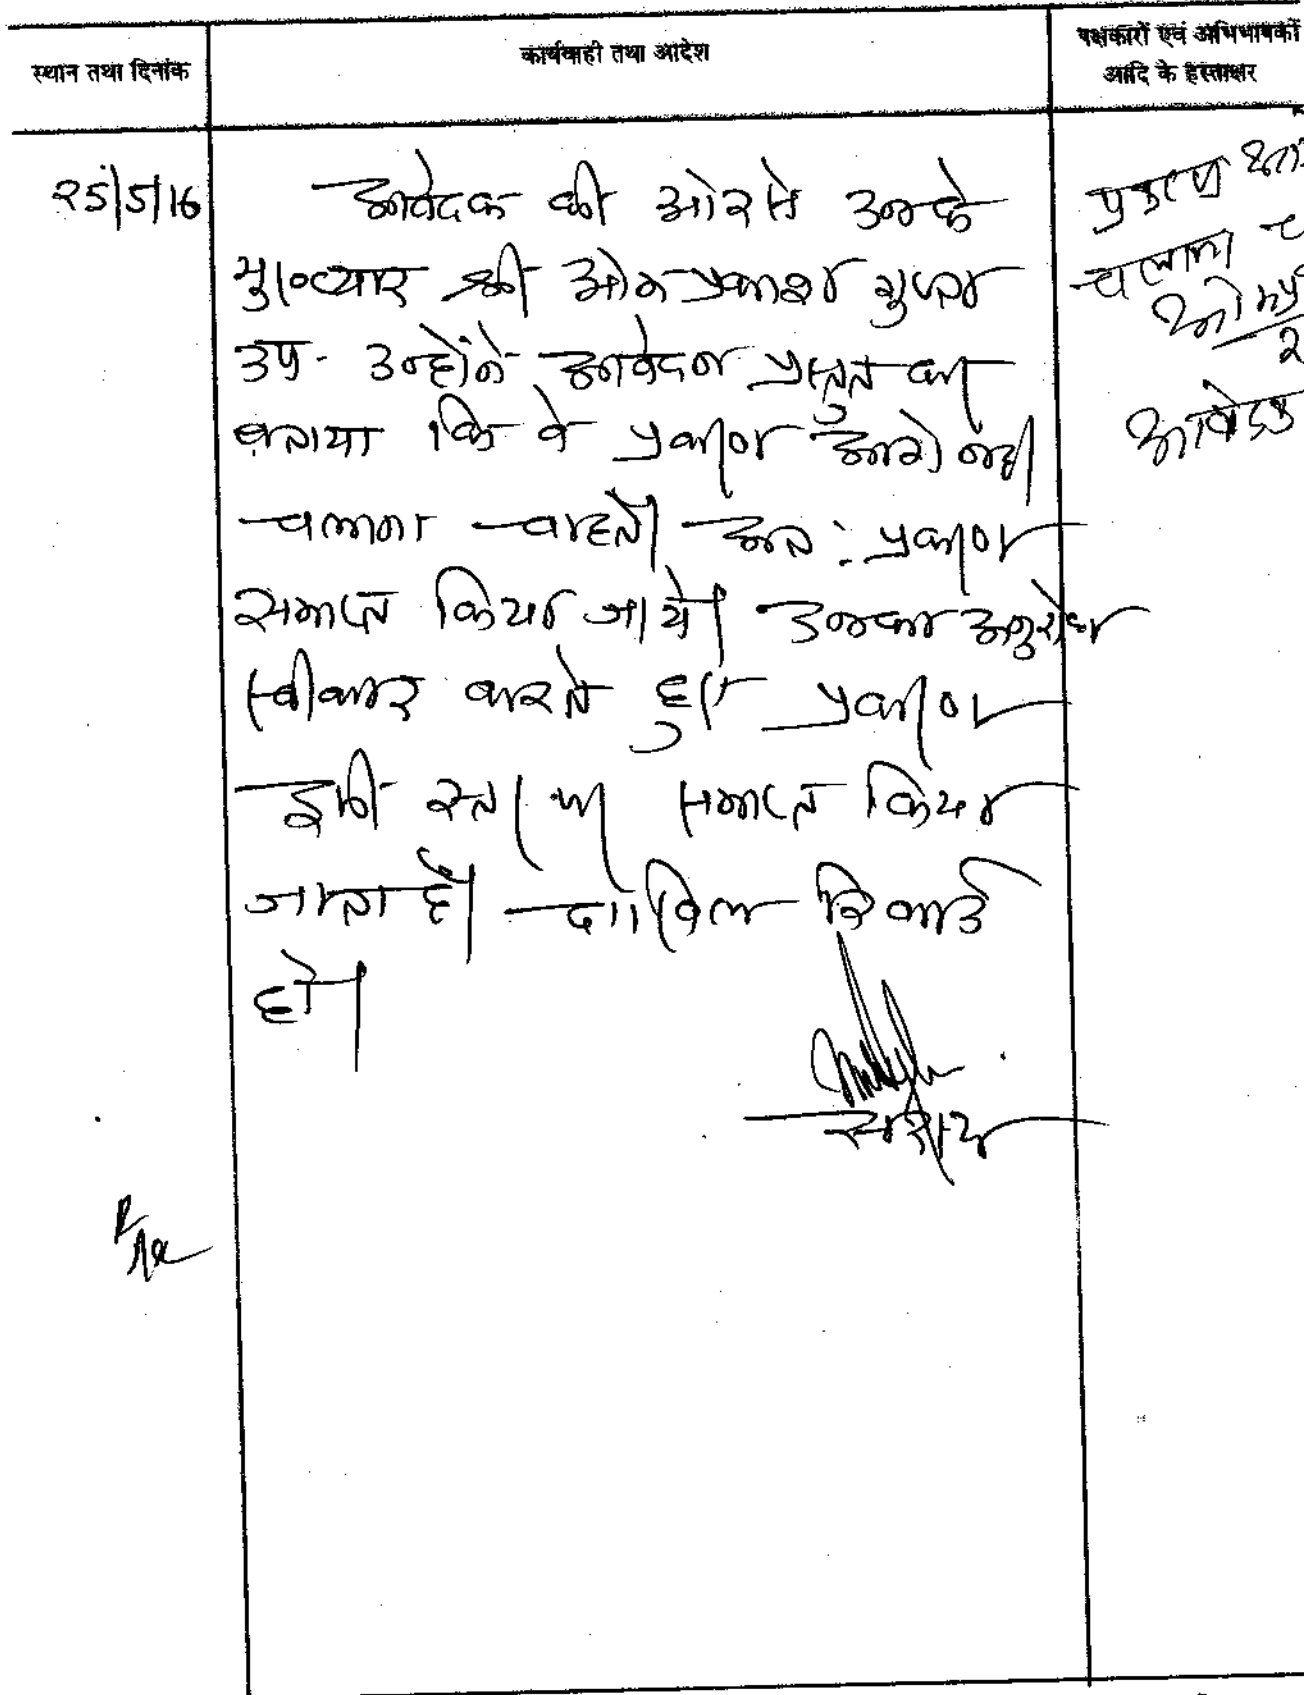 स्थान तथा दिनांक
कार्यवाही तथा आदेश
पक्षकारों एवं अभिभाषकों
आदि के हस्ताक्षर
25/5/16
आवेदक की ओर से उनके
मुख्त्यार श्री ओम प्रकाश गुप्ता
उप. उन्होंने आवेदन प्रस्तुत कर
बताया कि वे प्रकरण आगे नहीं
चलाना चाहते। अत: प्रकरण
समाप्त किया जाये। उनका अनुरोध
स्वीकार करते हुए प्रकरण
इसी स्तर पर समाप्त किया
जाता है। दाखिल रिकार्ड
हो।
सदस्य
प्रकरण
चलाना
आवेदक